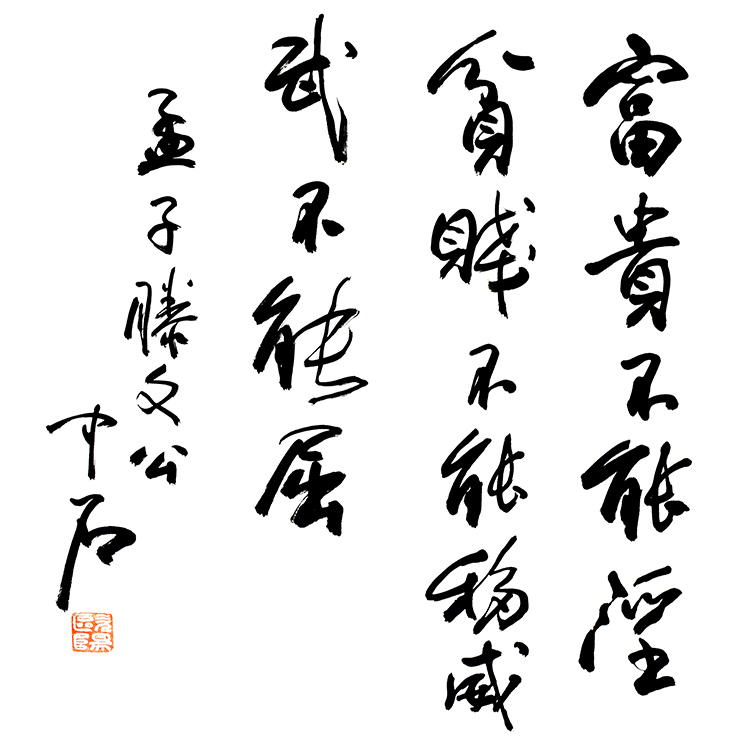 富貴不能淫
貧賤不能移威
武不能屈
孟子滕文公
中石